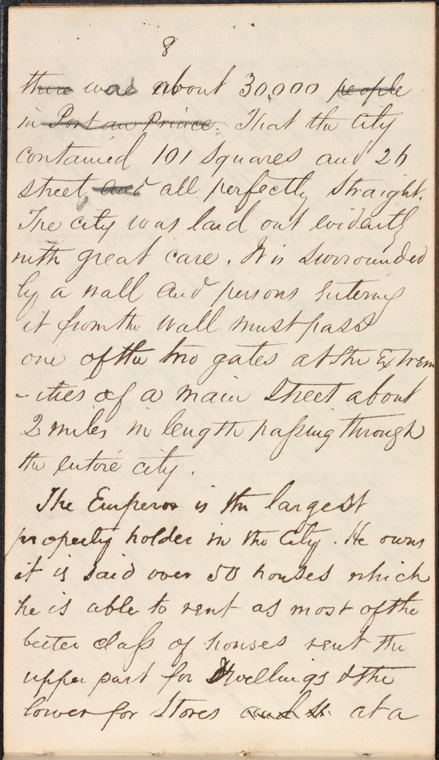 8
there was about 30000 people
in Port au Prince. That the City
contained 101 Squares and 26
street, and all perfectly straight.
The city was laid out evidently
with great care. It is surrounded
by a wall and persons entering
it from the wall must pass
one of the two gates at the Extrem
-ities of a main Street about
2 miles in length passing through
the entire city.
The Emperor is the largest
property holder in the City. He owns
it is said over 50 houses which
he is able to rent as most of the
better class of houses rent the
upper part for Dwellings & the
lower for Stores at a